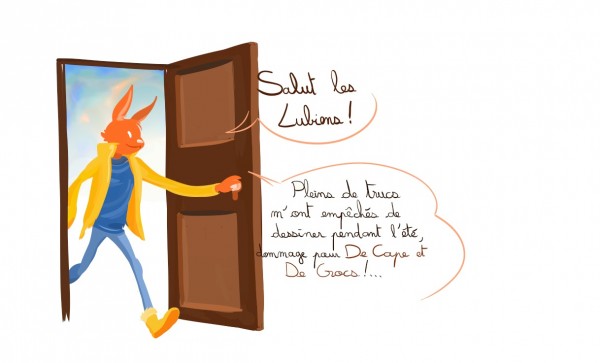 Salut les
Lubiens !
Pleins de trucs
m'ont empêchés de
dessiner pendant l'été,
dommage pour De Cape et
De Crocs !...